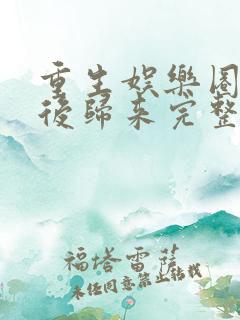 重生娛樂圈
後歸來完整
福塔雷薩
未经同意禁止转载